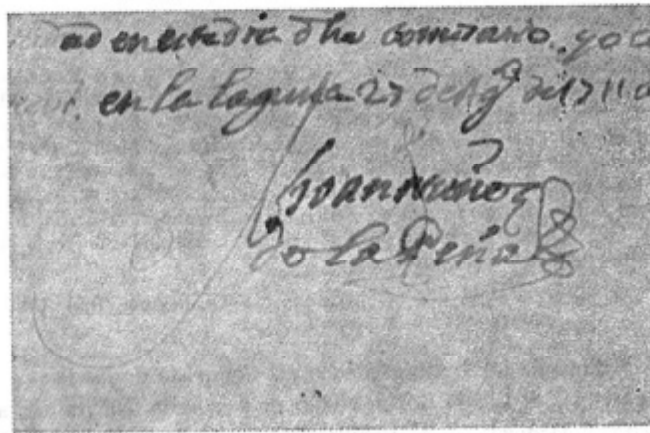 ad en esta dia dha comisario. yo
en la laguna 27 de Ag.to de 1711 a
Joan nuñez
de la Peña